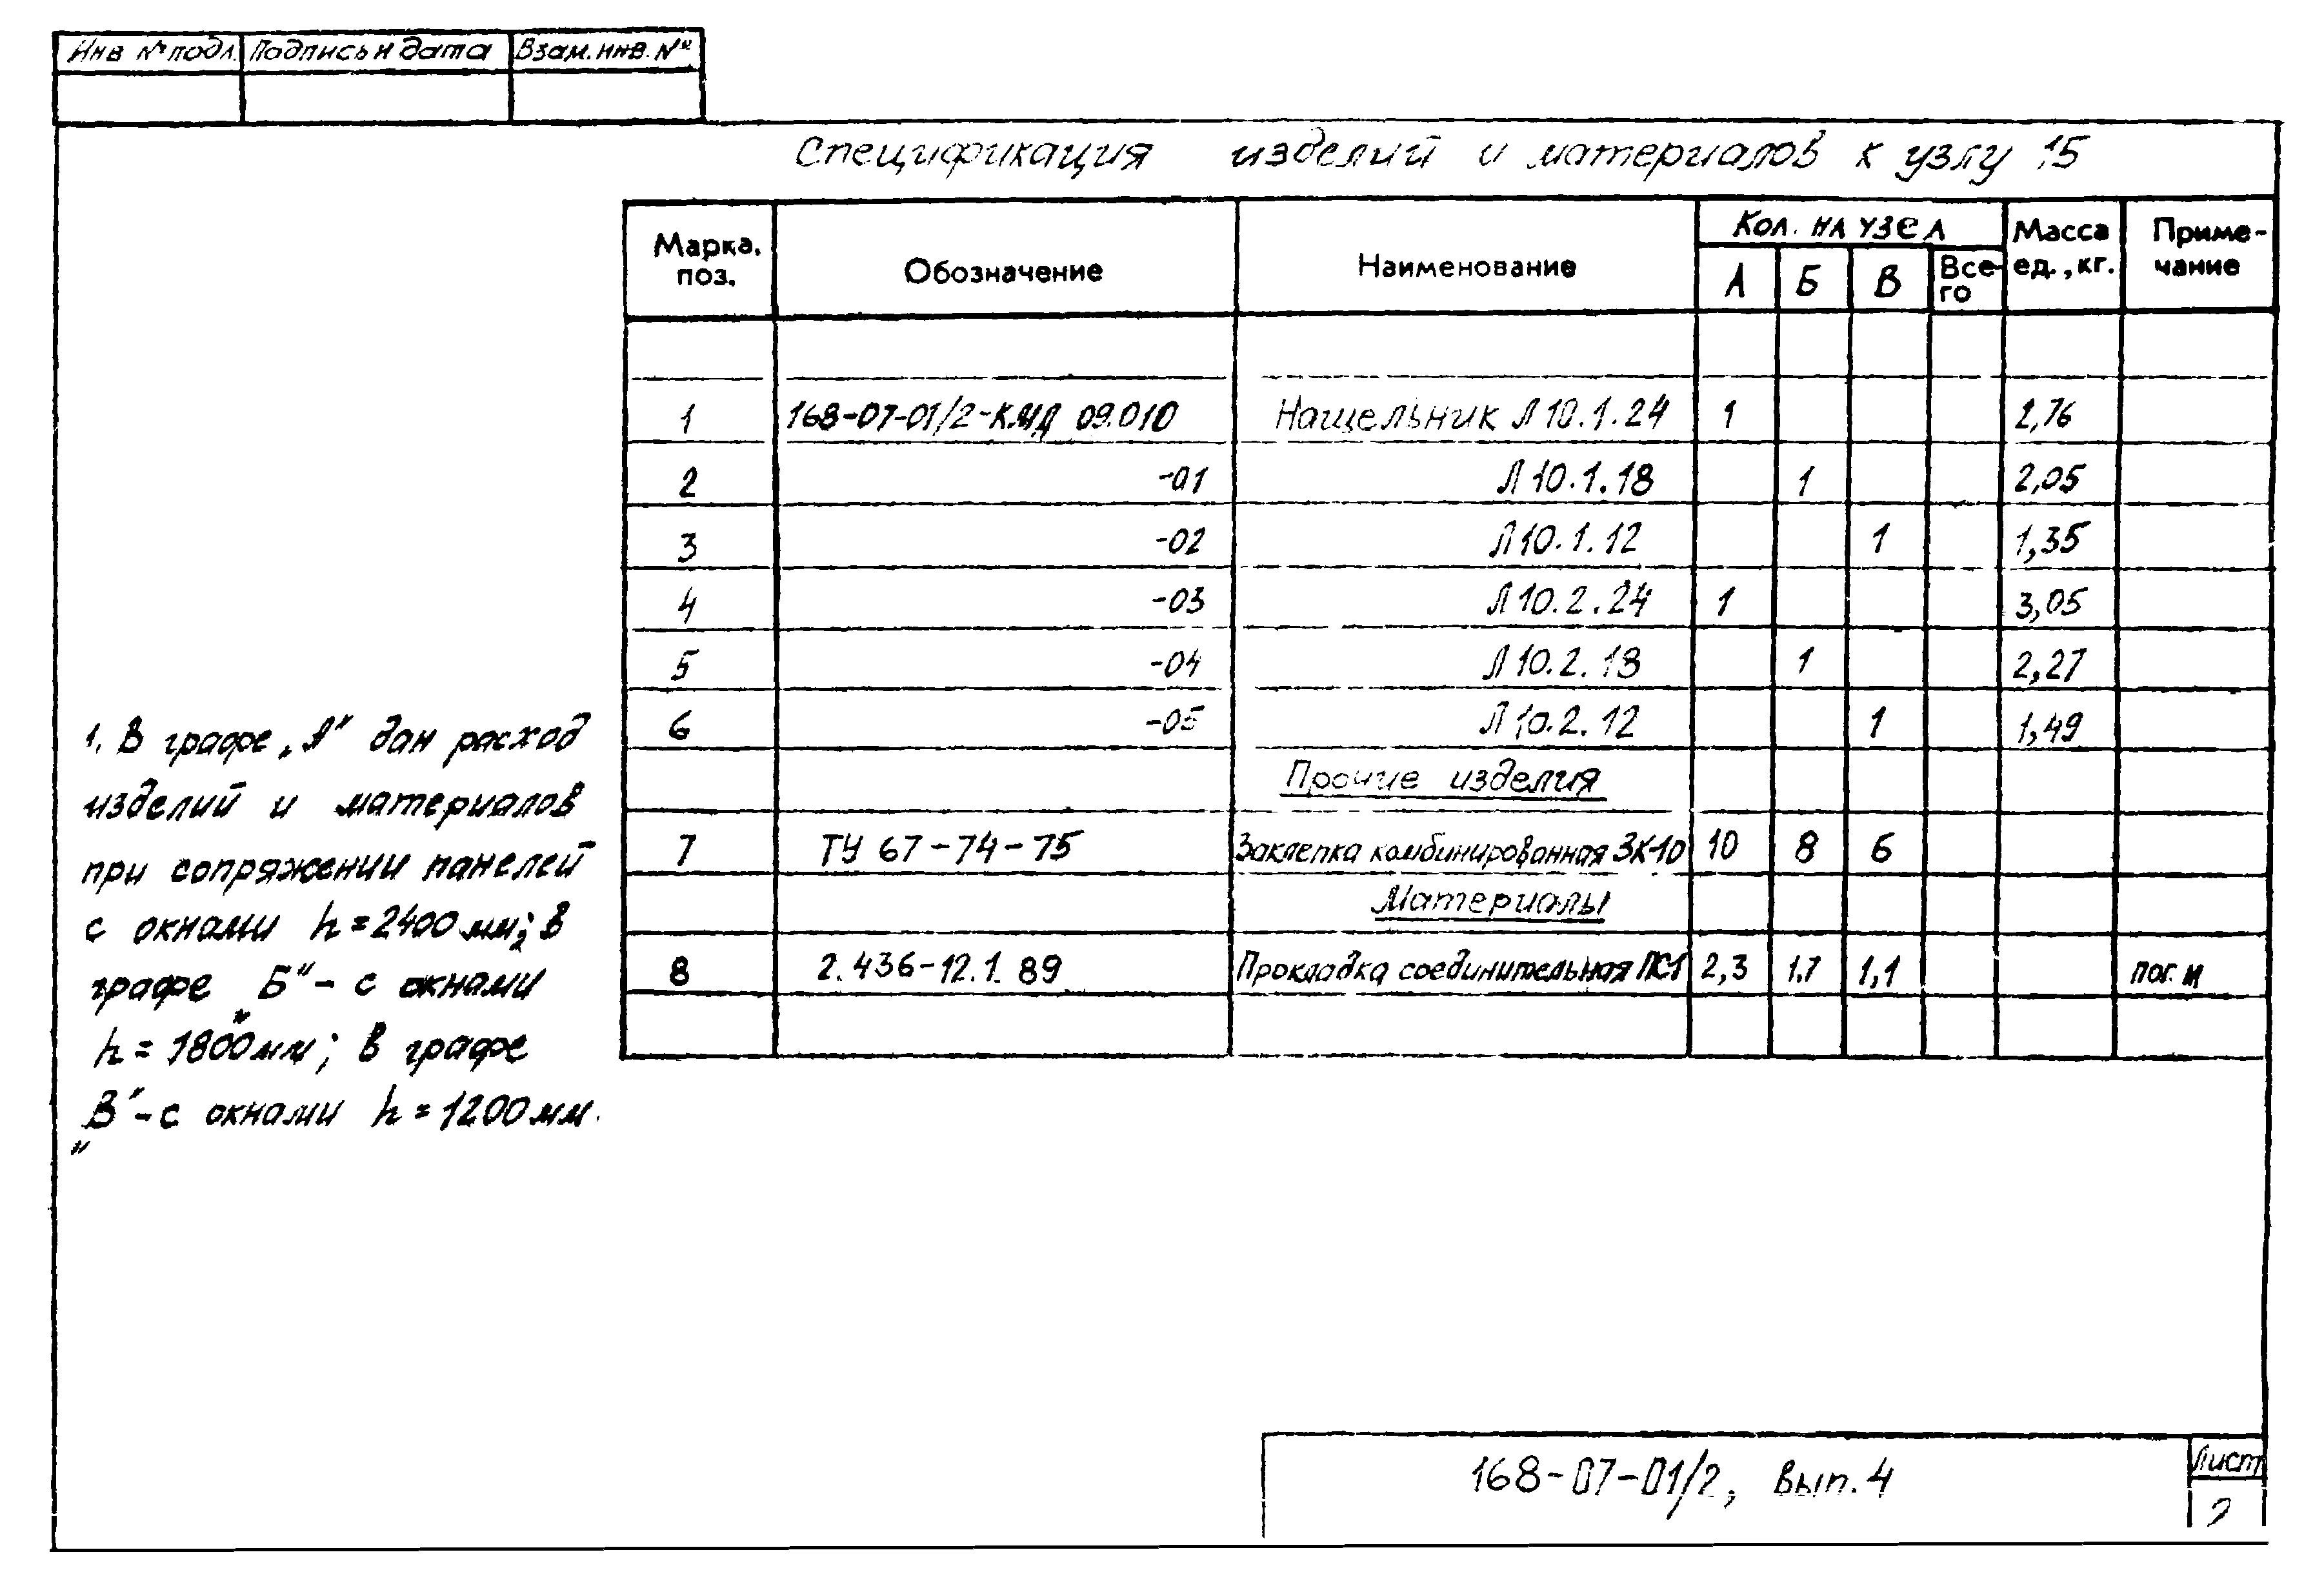 Инв № подл. Подпись и дата Взам. инв. №
Спецификация изделий и материалов к узлу 15
Марка, поз. Обозначение Наименование Кол. на узел Масса ед., кг. Приме-чание
А Б В Все-го
1 168-07-01/2-КМД 09.010 Нащельник Л10.1.24 1 2,76
2 -01 Л10.1.18 1 2,05
3 -02 Л10.1.12 1 1,35
4 -03 Л10.2.24 1 3,05
5 -04 Л10.2.18 1 2,27
6 -05 Л10.2.12 1 1,49
Прочие изделия
7 ТУ 67-74-75 Заклепка комбинированная ЗК-10 10 8 6
Материалы
8 2.436-12.1.89 Прокладка соединительная ПС1 2,3 1.7 1,1 пог. м
1. В графе „А" дан расход
изделий и материалов
при сопряжении панелей
с окнами h=2400мм; в
графе „Б" - с окнами
h=1800мм; в графе
„В" - с окнами h=1200мм.
168-07-01/2, вып.4
Лист
2